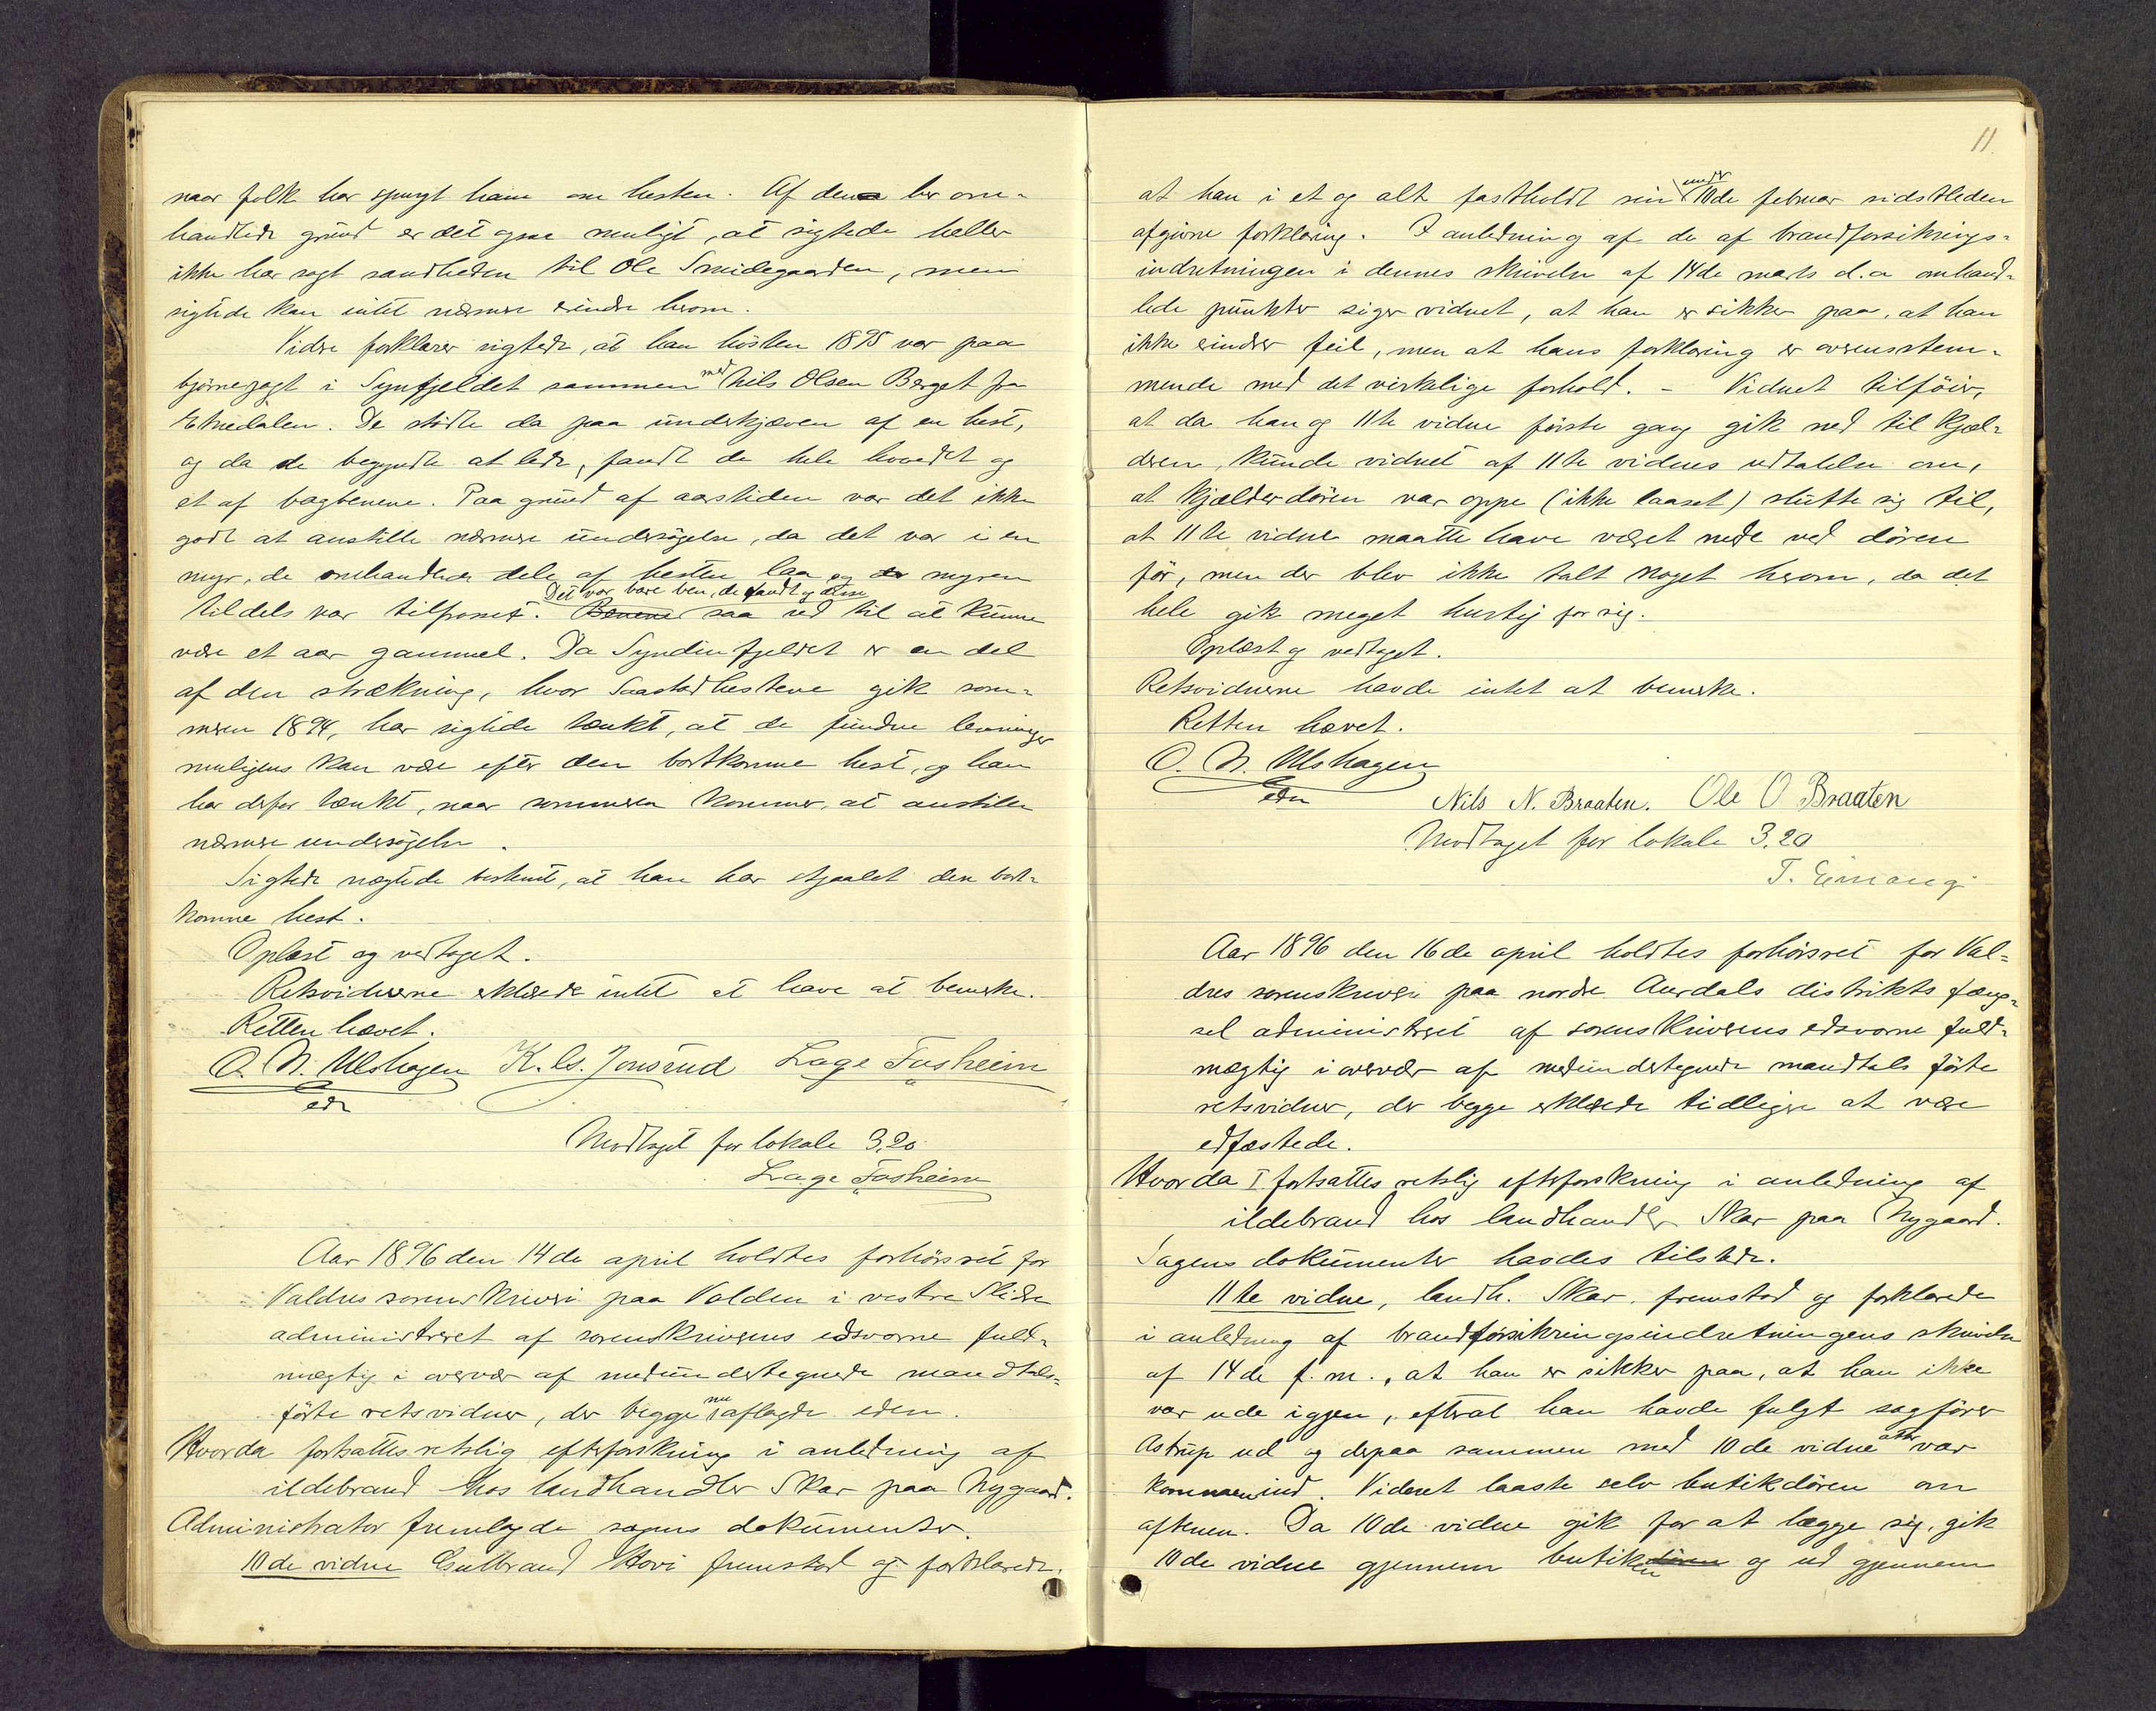 naar folk har spurgt ham om hesten. Af den her om-
handlede grund er det ogsaa muligt, at sigtede heller
ikke har sagt sandheden til Ole Smidegaarden, men
sigtede kan intet nærmere erindre herom.
Videre forklarer sigtede, at han hösten 1895 var paa
björnejagt i Synfjeldet sammen med Nils Olsen Berget fra
Etnedalen. De stödte da paa underkjæven af en hest,
og da de begyndte at lede, fandt de hele hovedet og
et af bagbenene. Paa grund af aarstiden var det ikke
godt at anstille nærmere undersögelse, da det var i en
myr, de omhandlede dele af hesten laa og da myren
tildels var tilfrosset. Det var bare ben, de fandt og disse saa ud til at kunne
være et aar gammel. Da Syndinfjeldet er en del
af den strækning, hvor Saastadhestene gik som-
meren 1894, har sigtede tænkt, at de fundne levninger
muligens kan være efter den bortkomne hest, og han
har derfor tænkt, naar sommeren kommer, at anstille
nærmere undersögelse.
Sigtede nægtede bestemt, at han har stjaalet den bort-
komne hest.
Oplæst og vedtaget.
Retsvidnerne erklærede intet at have at bemerke.
Retten hævet.
O. N. Ulshagen K. Gs. Jonsrud Lage Fosheim
edv
Modtaget for lokale 3,20
Lage Fosheim
Aar 1896 den 14de april holdtes forhörsret for
Valdres sorenskriveri paa Volden i vestre Slidre
administreret af sorenskriverens edsvorne fuld-
mægtig i overvær af medundertegnede mandtals-
förte retsvidner, der begge nu aflagde eden.
Hvorda fortsattes retslig efterforskning i anledning af
ildebrand hos landhandler Skar paa Nygaard.
Administrator fremlagde sagens dokumenter.
10de vidne Gulbrand Hovi fremstod og forklarede,
11.
at han i et og alt fastholdt sin under 10de februar sidstleden
afgivne forklaring. I anledning af de af brandforsikrings-
indretningen i dennes skrivelse af 14de marts d.a omhand-
lede punkter siger vidnet, at han er sikker paa, at han
ikke erindrer feil, men at hans forklaring er overensstem-
mende med det virkelige forhold. - Vidnet tilföier,
at da han og 11te vidne förste gang gik ned til kjæl-
deren, kunde vidnet af 11te vidnes udtalelse om,
at kjælderdören var oppe (ikke laaset) slutte sig til,
at 11te vidne maatte have været nede ved dören
för, men der blev ikke talt noget herom, da det
hele gik meget hurtig for sig.
Oplæst og vedtaget.
Retsvidnerne havde intet at bemerke.
Retten hævet.
O. N. Ulshagen
edv
Nils N. Braaten. Ole O Braaten
Modtaget for lokale 3,20
T. Eimang
Aar 1896 den 16de april holdtes forhörsret for Val-
dres sorenskriveri paa nordre Aurdals distrikts fæng-
sel administreret af sorenskriverens edsvorne fuld-
mægtig i overvær af medundertegnede mandtals förte
retsvidner, der begge erklærede tidligere at være
edfæstede.
Hvorda I fortsattes retslig efterforskning i anledning af
ildebrand hos landhandler Skar paa Nygaard.
Sagens dokumenter havdes tilstede.
11te vidne, landh. Skar, fremstod og forklarede
i anledning af brandforsikringsindretningens skrivelse
af 14de f.m., at han er sikker paa, at han ikke
var ude igjen, efterat han havde fulgt sagförer
Astrup ud og derpaa sammen med 10de vidne atter var
kommen ind. Vidnet laaste selv butikdören om
aftenen. Da 10de vidne gik for at lægge sig, gik
10de vidne gjennem butiken og ud gjennem